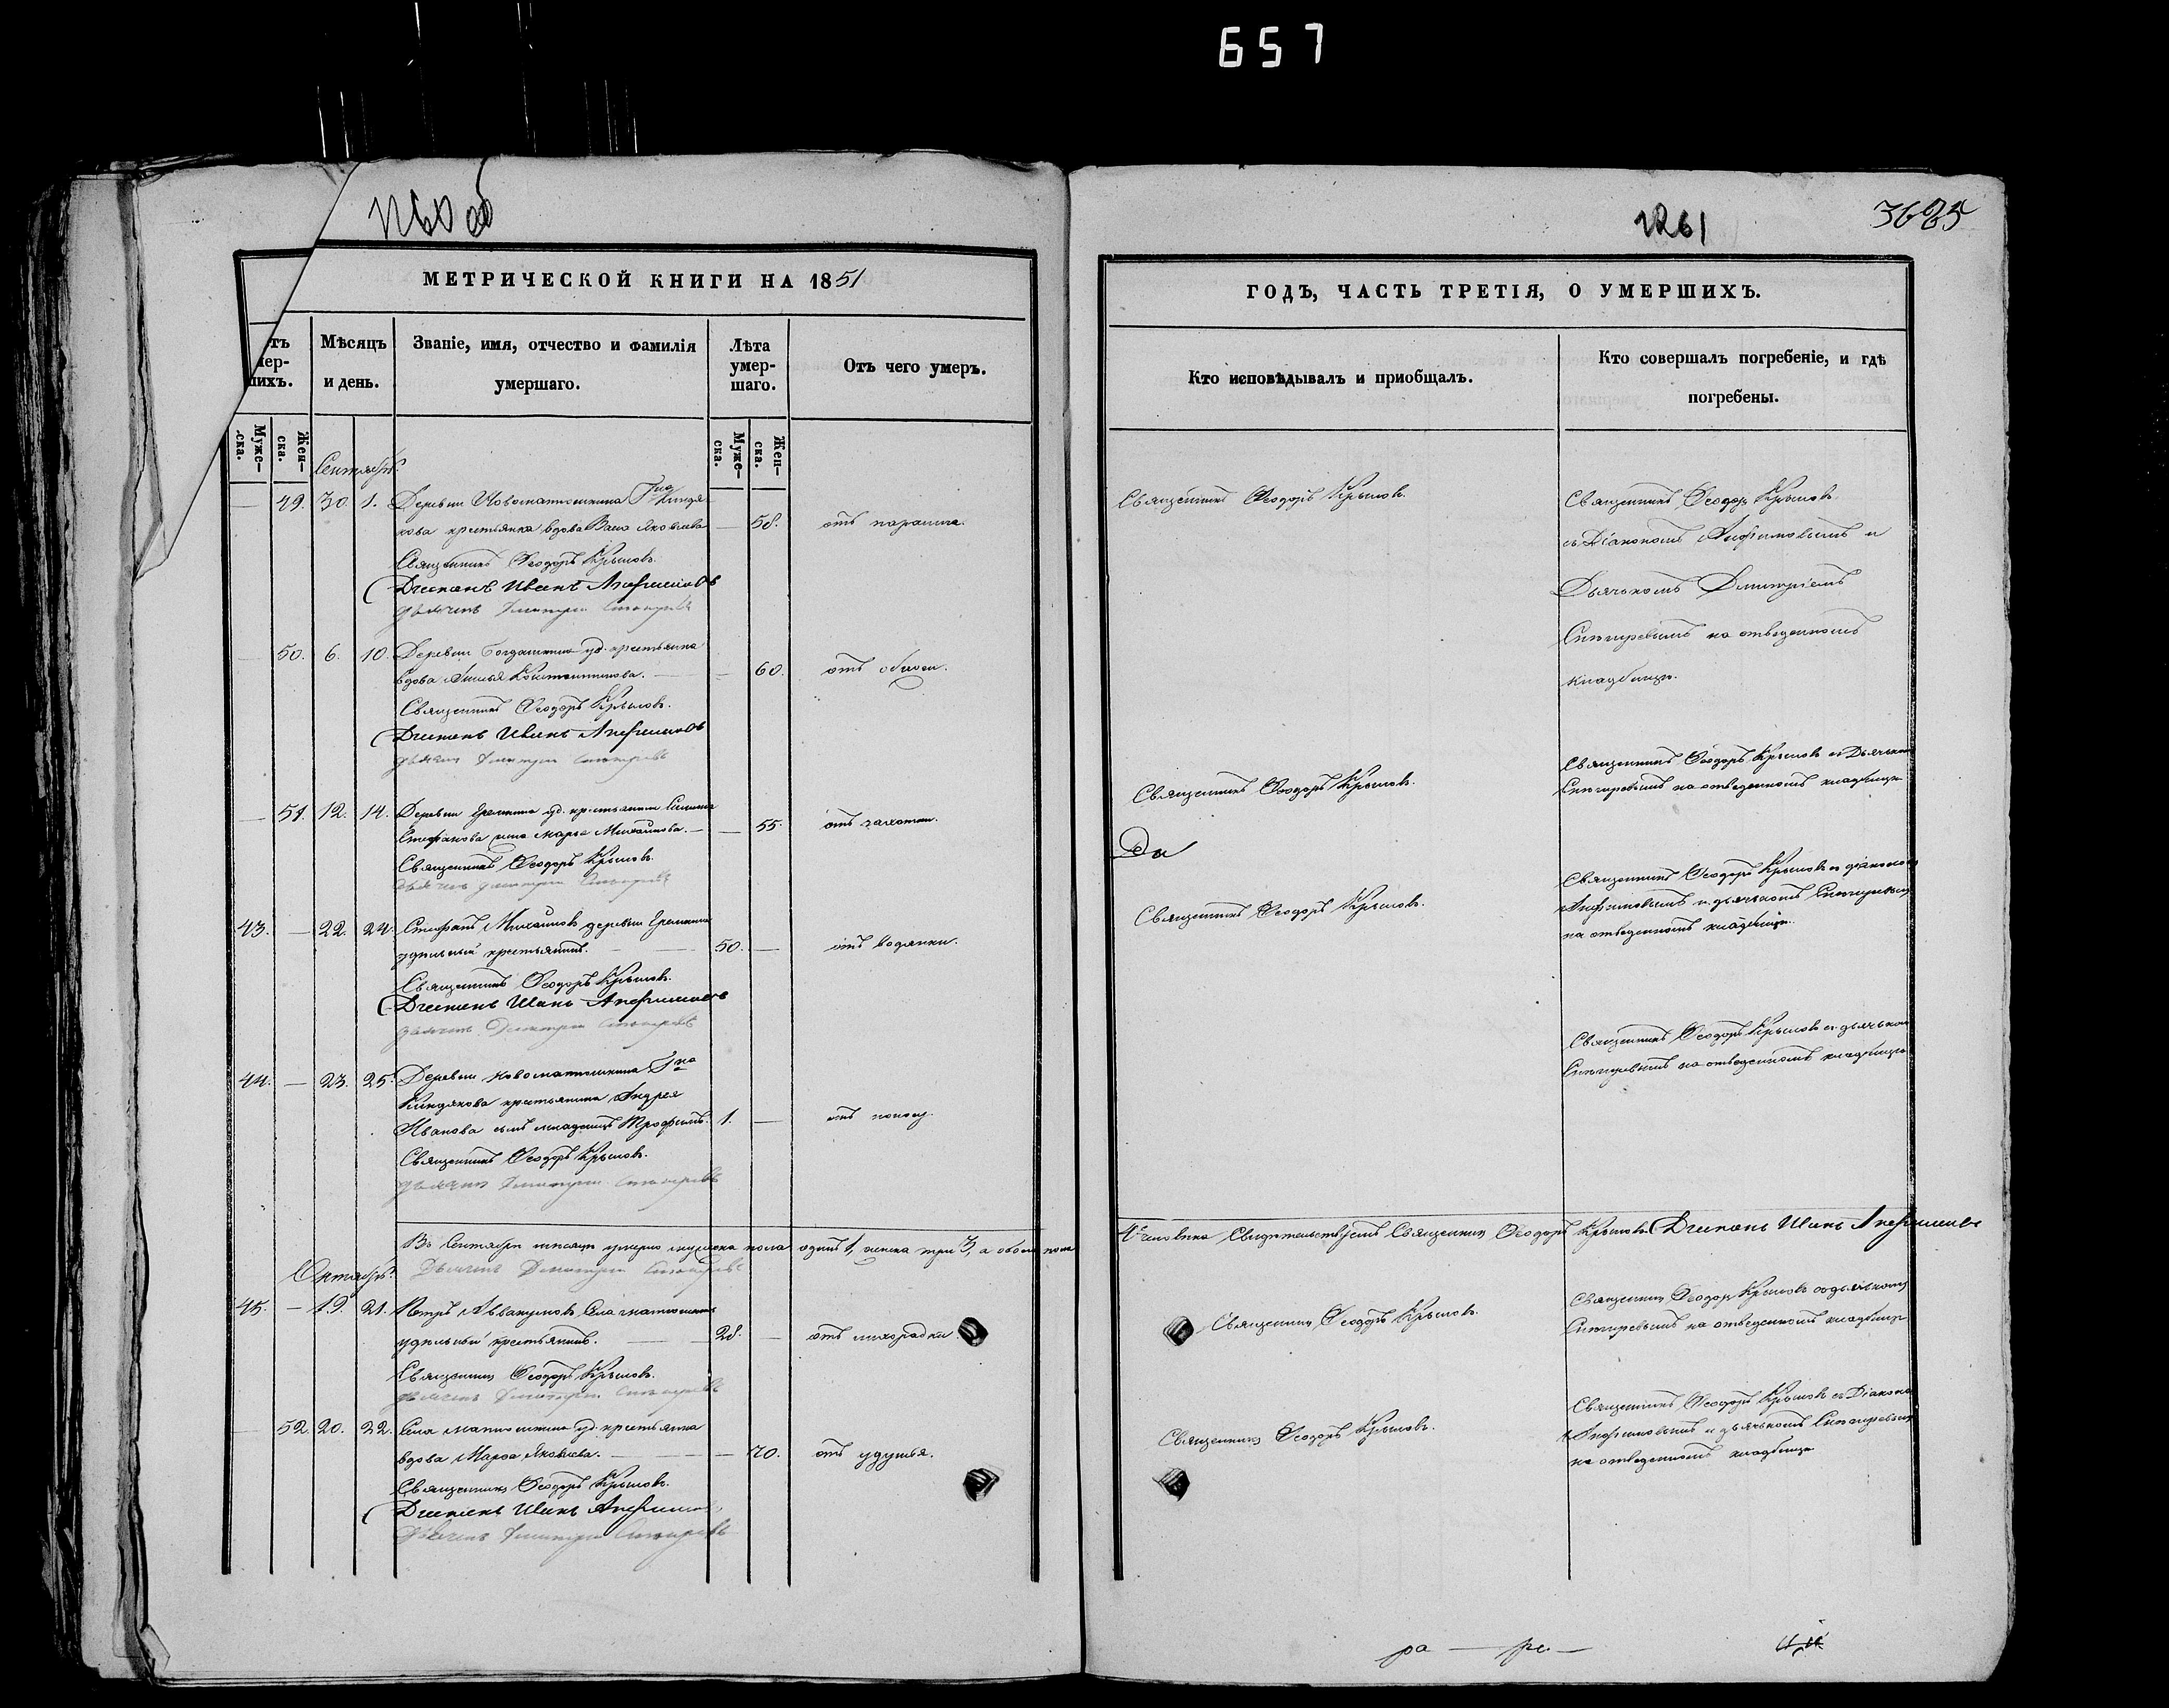 657
1261
3625
МЕТРИЧЕСКОЙ КНИГИ НА 1851
ГОДЪ, ЧАСТЬ ТРЕТІЯ, О УМЕРШИХЪ.
тъ
мер-
шихъ.
Муже-
ска.
Жен-
ска.
Мѣсяцъ
и день.
Званіе, имя, отчество и фамилія
умершаго.
Лѣта
умер-
шаго.
Муже-
ска.
Жен-
ска.
Отъ чего умеръ.
Кто исповѣдывалъ и пріобщалъ.
Кто совершалъ погребеніе, и гдѣ
погребены.
Сентябрь.
— 49. 30. 1. Деревни Новоматюшкина Гна Киндя-
кова крестьянка вдова Яковлева — 58.
Священникъ Ѳеодоръ Крыловъ.
Діаконъ Иванъ Анѳимовъ
дьячекъ Димитрій Снегиревъ
Священникъ Ѳеодоръ Крыловъ.
Священникъ Ѳеодоръ Крыловъ
съ Діакономъ Анѳимовымъ и
Дьячкомъ Димитріемъ
Снегиревымъ на отведенномъ
кладбищѣ.
— 50. 6. 10. Деревни уд. крестьянка
вдова Константинова. — — 60. отъ
Священникъ Ѳеодоръ Крыловъ.
Діаконъ Иванъ Анѳимовъ
дьячекъ Димитрій Снегиревъ
Священникъ Ѳеодоръ Крыловъ.
Священникъ Ѳеодоръ Крыловъ съ Дьячком
Снегиревымъ на отведенномъ кладбищѣ
— 51. 12. 14. Деревни Еремкина уд. крестьянина
Стефанова жена Марья Михайлова. — — 55. отъ чахотки.
Священникъ Ѳеодоръ Крыловъ.
дьячекъ Димитрій Снегиревъ
Священникъ Ѳеодоръ Крыловъ съ діакономъ
Анѳимовымъ и дьячкомъ Снегиревым
на отведенномъ кладбищѣ.
43. — 22. 24. Стефанъ Михайловъ деревни Еремкина
удѣльный крестьянинъ. — 50. — отъ водянки.
Священникъ Ѳеодоръ Крыловъ.
Діаконъ Иванъ Анѳимовъ
дьячекъ Димитрій Снегиревъ
Священникъ Ѳеодоръ Крыловъ.
Священникъ Ѳеодоръ Крыловъ съ дьячком
Снегиревымъ на отведенномъ кладбищѣ
44. — 23. 25. Деревни Новоматюшкина Гна
Киндякова крестьянина Андрея
Иванова сынъ младенецъ Трофимъ. 1. — отъ поносу.
Священникъ Ѳеодоръ Крыловъ.
дьячекъ Димитрій Снегиревъ
Въ Сентябрѣ мѣсяцѣ умерло мужеска пола одинъ 1, женска три 3, а обоего пола
4 человѣка Свидѣтельствуемъ Священникъ Ѳеодоръ Крыловъ Діаконъ Иванъ Анѳимовъ
Дьячекъ Димитрій Снегиревъ
Октябрь.
45. — 19. 21. Петръ Аввакумовъ Села Матюшкина
удѣльный крестьянинъ. — 28. — отъ лихорадки
Священникъ Ѳеодоръ Крыловъ.
дьячекъ Димитрій Снегиревъ
Священникъ Ѳеодоръ Крыловъ.
Священникъ Ѳеодоръ Крыловъ съ дьячкомъ
Снегиревымъ на отведенномъ кладбищѣ
— 52. 20. 22. Села Матюшкина уд. крестьянка
вдова Марѳа Яковлева. — — 70. отъ удушья.
Священникъ Ѳеодоръ Крыловъ.
Діаконъ Иванъ Анѳимовъ
дьячекъ Димитрій Снегиревъ
Священникъ Ѳеодоръ Крыловъ.
Священникъ Ѳеодоръ Крыловъ съ Діаконом
Анѳимовымъ и дьячкомъ Снегиревым
на отведенномъ кладбищѣ